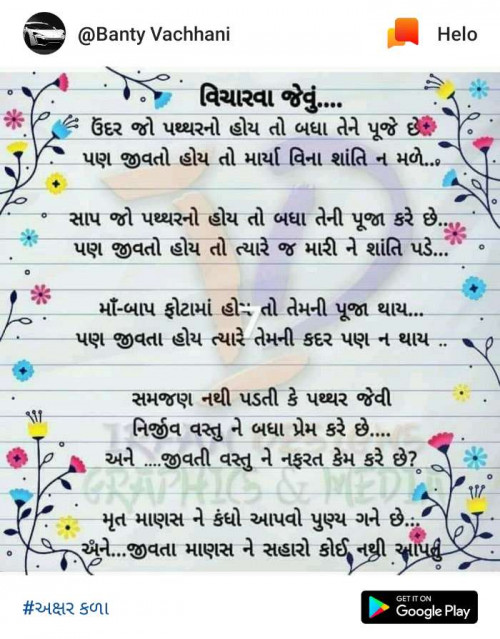 @Banty Vachhani
Helo
વિચારવા જેવું....
ઉંદર જો પથ્થરનો હોય તો બધા તેને પૂજે છે
પણ જીવતો હોય તો માર્યા વિના શાંતિ ન મળે...
સાપ જો પથ્થરનો હોય તો બધા તેની પૂજા કરે છે...
પણ જીવતો હોય તો ત્યારે જ મારી ને શાંતિ પડે...
માઁ-બાપ ફોટામાં હોય તો તેમની પૂજા થાય...
પણ જીવતા હોય ત્યારે તેમની કદર પણ ન થાય ..
સમજણ નથી પડતી કે પથ્થર જેવી
નિર્જીવ વસ્તુ ને બધા પ્રેમ કરે છે....
અને ....જીવતી વસ્તુ ને નફરત કેમ કરે છે?
GRAPHICS & MEDIA
મૃત માણસ ને કંધો આપવો પુણ્ય ગને છે...
અને...જીવતા માણસ ને સહારો કોઈ નથી આપતું
#અક્ષર કળા
GET IT ON
Google Play